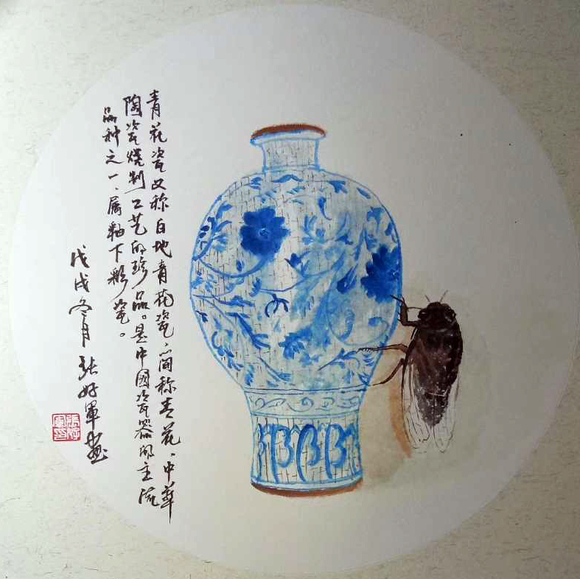 青花瓷又称白地青花瓷，简称青花、中华
陶瓷烧制工艺的珍品。是中国瓷器的主流
品种之一、属釉下彩瓷。
戊戌冬月张好军画